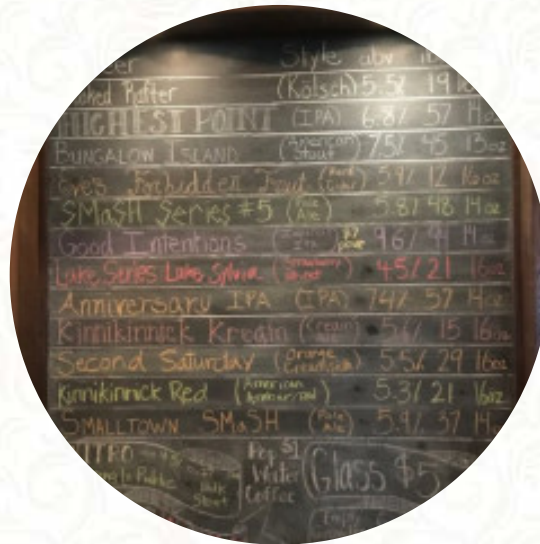 Style abv
Rafter (Kölsch) 5.5%
HIGHEST POINT (IPA) 6.8% 57 14oz
BUNGALOW ISLAND (American Stout) 7.5% 45 13oz
Eve's Forbidden Fruit 5.9% 12 16oz
SMaSH Series #5 (Pale Ale) 5.8% 48 14oz
Good Intentions 9.6%
Lake Series Lake Sylvia 4.5% 21 16oz
Anniversary IPA (IPA) 7.4% 57 14oz
Kinnikinnick Kream (Kream) 5.6% 15 16oz
Second Saturday (Orange Creamsicle) 5.5% 29 16oz
Kinnikinnick Red (American Amber/Red) 5.3% 21 16oz
SMALLTOWN SMaSH (Pale Ale) 5.9% 37
Pop $1
Water
Coffee
Glass $5